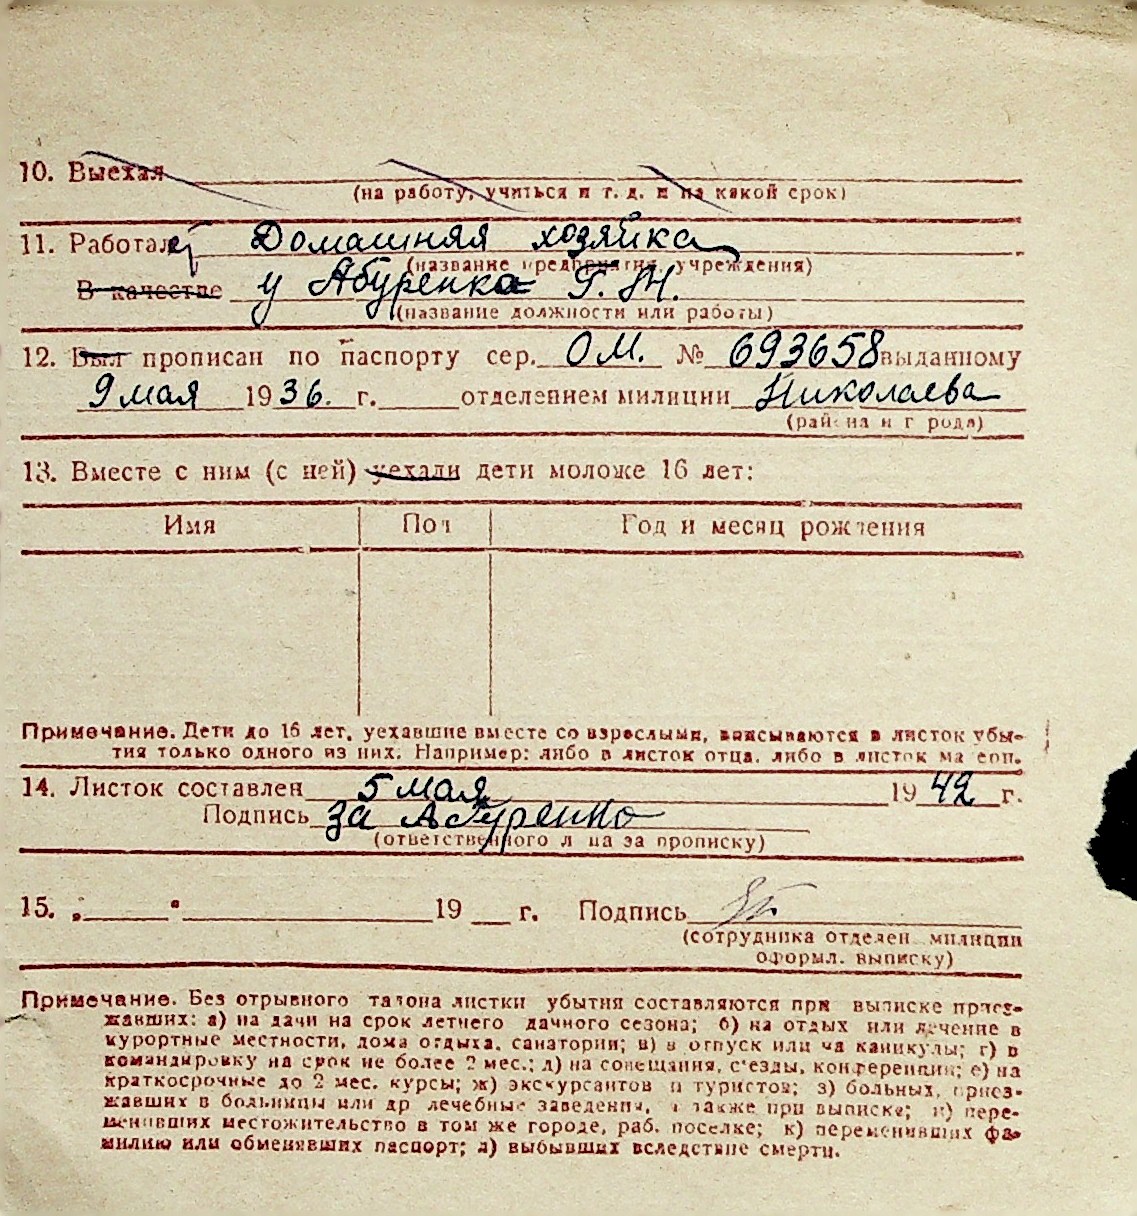 10. Выехал
(на работу, учиться и т. д. и на какой срок)
11. Работал Домашняя хозяйка
(название предприятия, учреждения)
В качестве у Абуренко Г. Н.
(название должности или работы)
12. Был прописан по паспорту сер. ОМ. № 693658 выданному
9 мая 1936. г. отделением милиции Николаева
(района и города)
13. Вместе с ним (с ней) уехали дети моложе 16 лет:
Имя Пол Год и месяц рождения
Примечание. Дети до 16 лет, уехавшие вместе со взрослыми, вписываются в листок убы-
тия только одного из них. Например: либо в листок отца, либо в листок матери.
14. Листок составлен 5 мая 1942 г.
Подпись за Абуренко
(ответственного лица за прописку)
15. „ " 19 г. Подпись
(сотрудника отделен. милиции
оформл. выписку)
Примечание. Без отрывного талона листки убытия составляются при выписке приез-
жавших: а) на дачи на срок летнего дачного сезона; б) на отдых или лечение в
курортные местности, дома отдыха, санатории; в) в отпуск или на каникулы; г) в
командировку на срок не более 2 мес.; д) на совещания, с'езды, конференции; е) на
краткосрочные до 2 мес. курсы; ж) экскурсантов и туристов; з) больных, приез-
жавших в больницы или др лечебные заведения, а также при выписке; и) пере-
менивших местожительство в том же городе, раб. поселке; к) переменивших фа-
милию или обменявших паспорт; л) выбывших вследствие смерти.